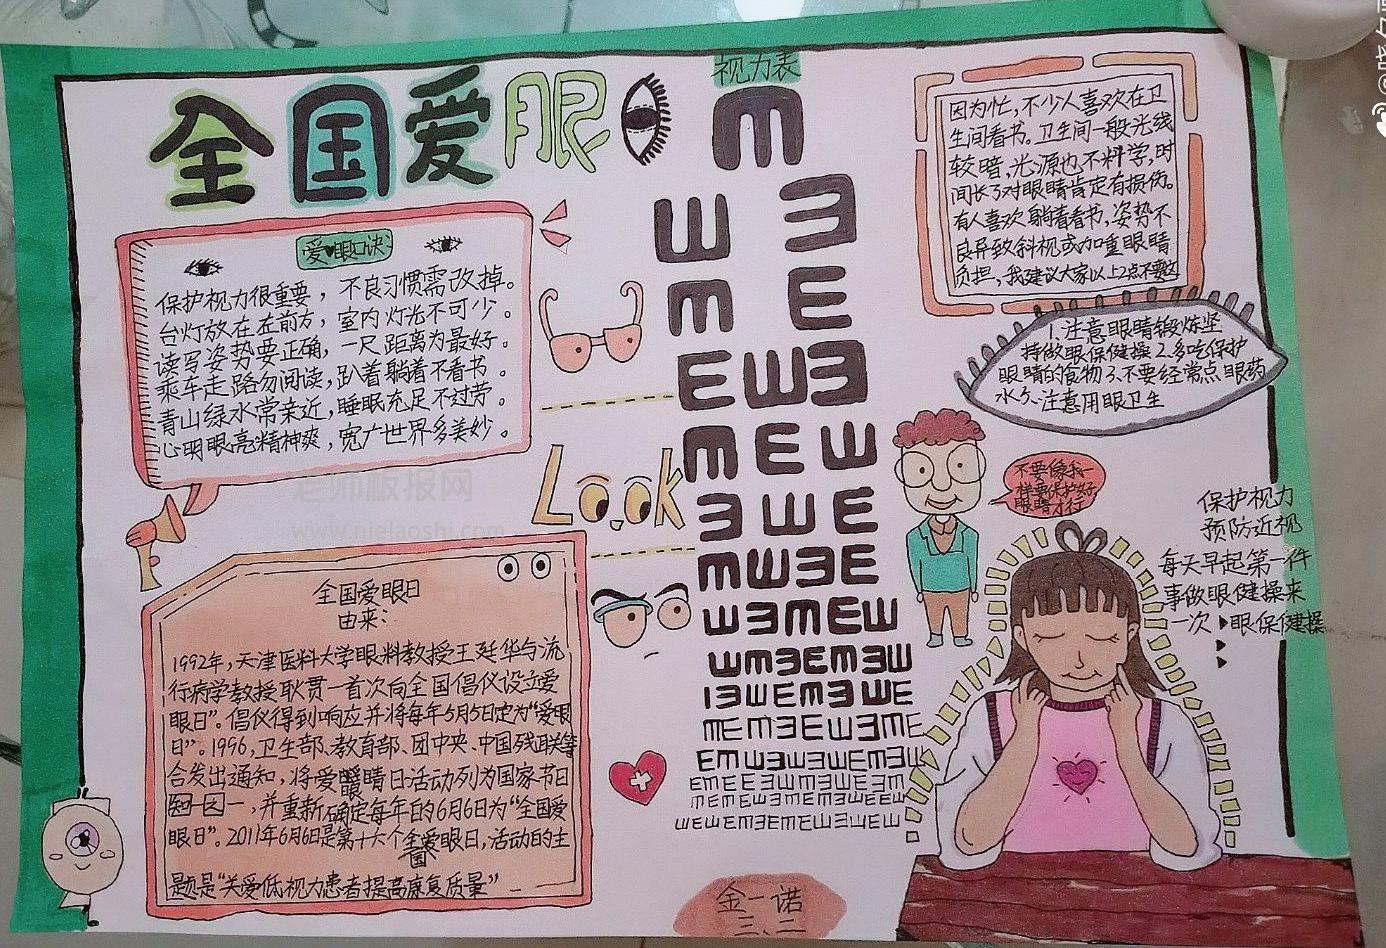 全国爱眼
视力表
爱眼口诀
保护视力很重要，不良习惯需改掉。
台灯放在左前方，室内灯光不可少。
读写姿势要正确，一尺距离为最好。
乘车走路勿阅读，趴着躺着不看书。
青山绿水常亲近，睡眠充足不过劳。
心明眼亮精神爽，宽广世界多美妙。
因为忙，不少人喜欢在卫
生间看书。卫生间一般光线
较暗，光源也不科学，时
间长了对眼睛肯定有损伤。
有人喜欢躺着看书，姿势不
良异致斜视或加重眼睛
负担，我建议大家以上2点不要这
1.注意眼睛锻炼坚
持做眼保健操2.多吃保护
眼睛的食物3.不要经常点眼药
水5.注意用眼卫生
Look
不要像我一
样要保护好
眼睛才行
保护视力
预防近视
每天早起第一件
事做眼健操来
一次眼保健操
全国爱眼日
由来：
1992年，天津医科大学眼科教授王延华与流
行病学教授耿贯一首次向全国倡仪设立爱
眼日”。倡仪得到响应并将每年5月5日定为“爱眼
日”。1996，卫生部、教育部、团中央、中国残联等
合发出通知，将爱眼睛日活动列为国家节日
一，并重新确定每年的6月6日为“全国爱
眼日”。2011年6月6日是第十六个全国爱眼日，活动的主
题是“关爱低视力患者提高康复质量”
金一诺
三、二
老师板报网
www.nielaoshi.com